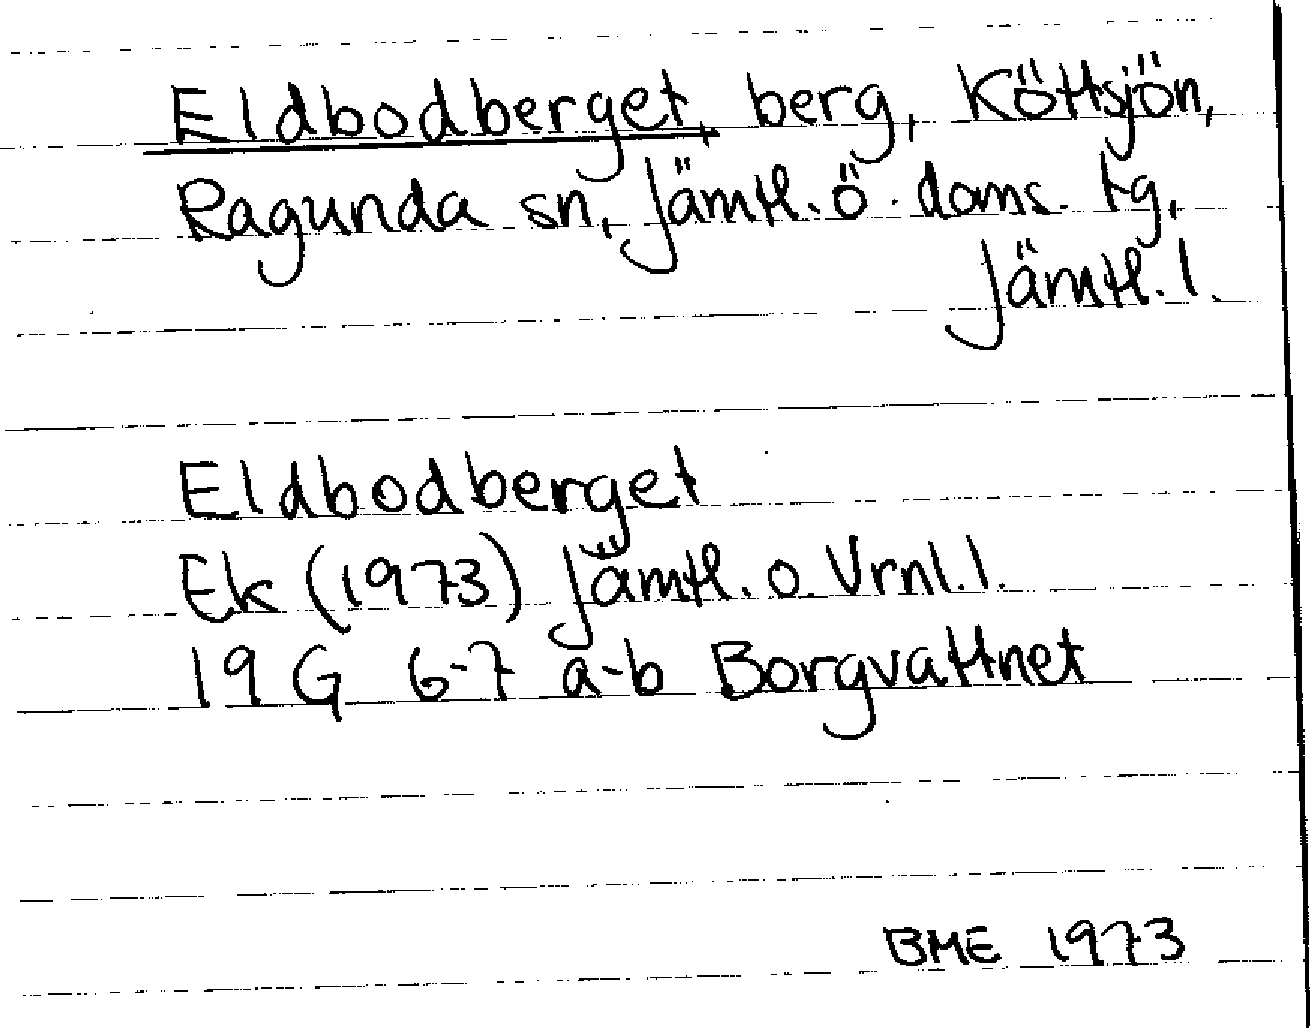 Eldbodberget, berg, Köttsjön,
Ragunda sn, Jämtl. ö. doms. tg,
Jämtl. l.
Eldbodberget
Ek (1973) Jämtl. o. Vrnl. l.
19 G 6-7 a-b Borgvattnet
BME 1973